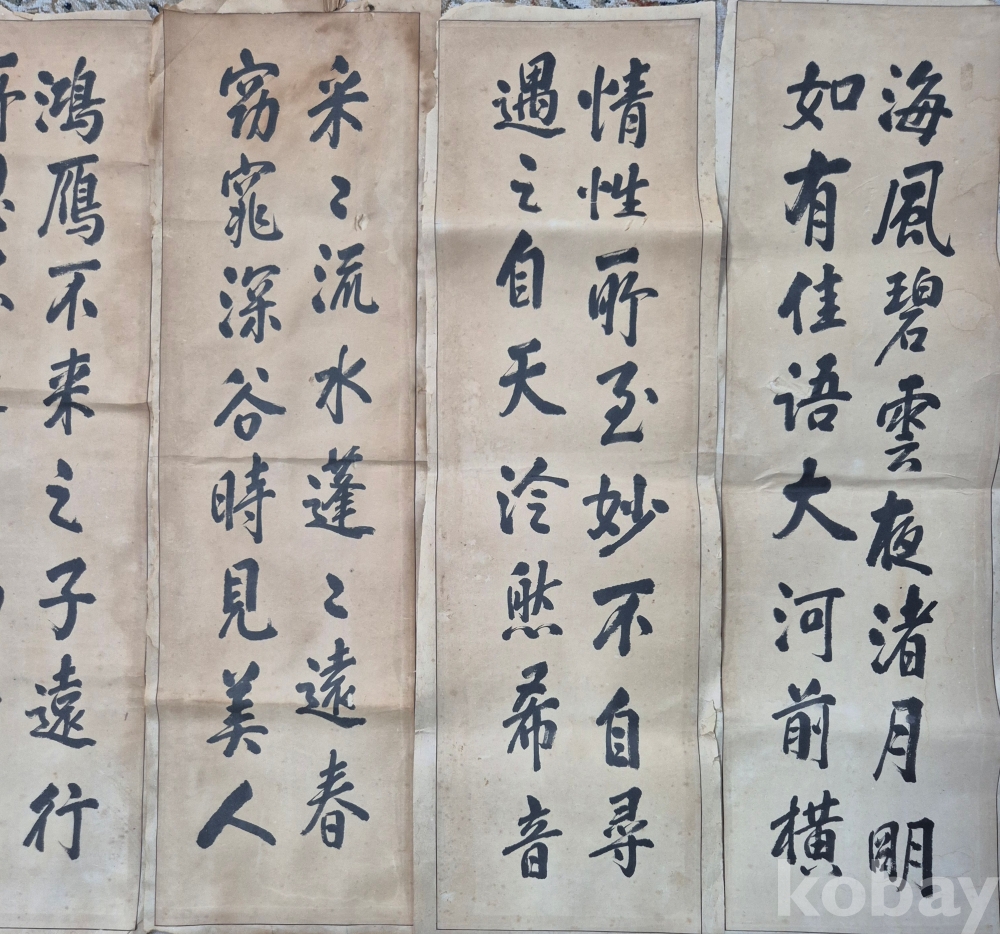 海風碧雲夜渚月明
如有佳語大河前橫
情性所至妙不自尋
遇之自天泠然希音
采〻流水蓬〻遠春
窈窕深谷時見美人
鴻雁不来之子遠行
kobay